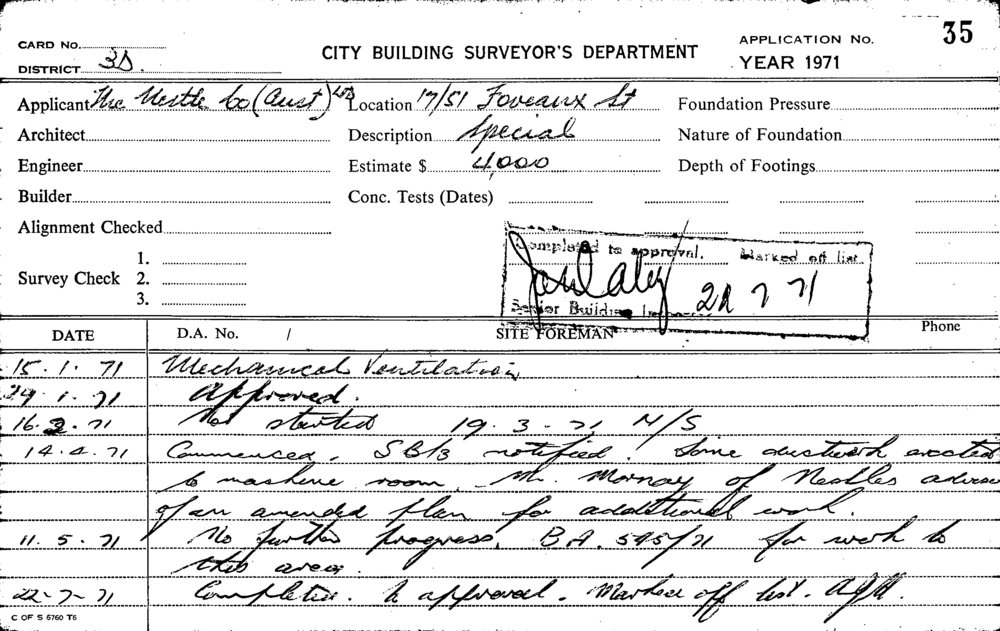 CARD No.
DISTRICT 3D.
CITY BUILDING SURVEYOR'S DEPARTMENT
APPLICATION No. 35
YEAR 1971
Applicant The Nestle Co (Aust) Ltd Location 17/51 Foveaux St Foundation Pressure
Architect Description Special Nature of Foundation
Engineer Estimate $ 4,000 Depth of Footings
Builder Conc. Tests (Dates)
Alignment Checked
Completed to approval. Marked off list.
Survey Check 1.
2.
3.
Senior Building 7 71
DATE D.A. No. / SITE FOREMAN Phone
15.1.71 Mechanical Ventilation
29.1.71 Approved.
16.3.71 Not started 19.3.71 N/S
14.4.71 Commenced. SB/3 notified. Some ductwork erected
to machine room. Mr. Mornay of Nestles advise
of an amended plan for additional work.
11.5.71 No further progress. B.A. 595/71 for work to
this area.
22-7-71 Completed. to approval. Marked off list.
C OF S 6760 T6